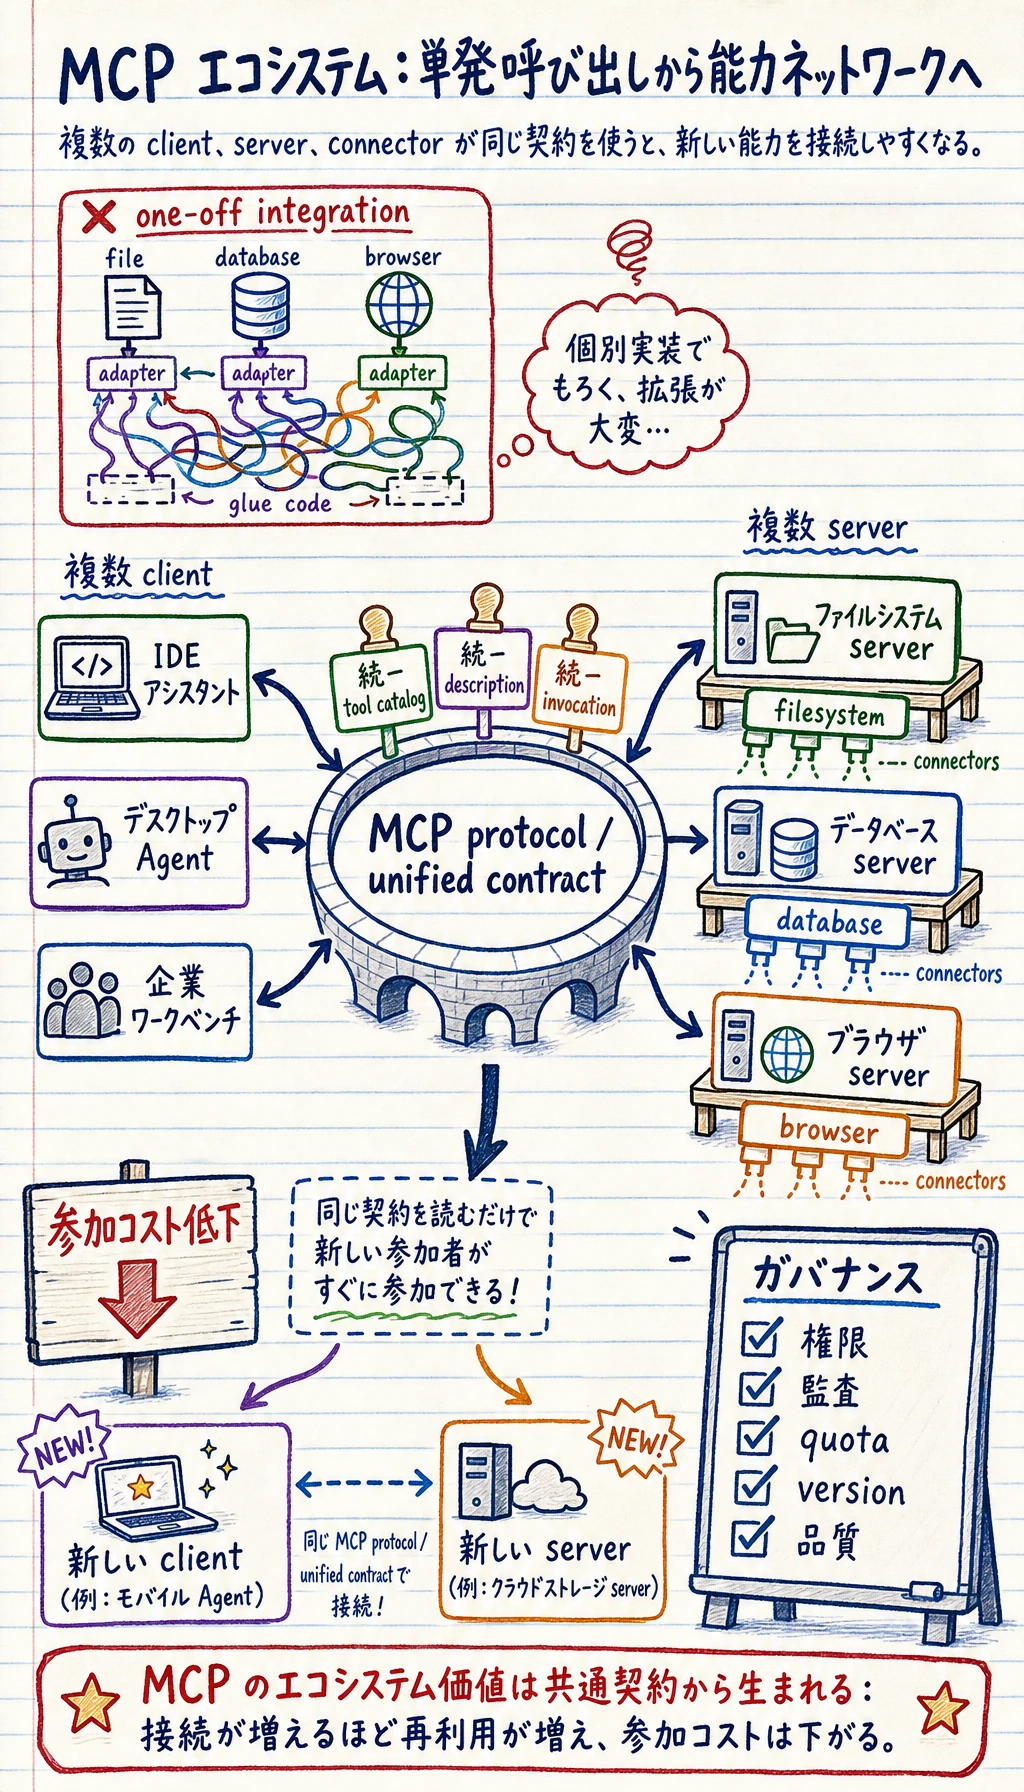 MCP エコシステム：単発呼び出しから能力ネットワークへ
複数の client、server、connector が同じ契約を使うと、新しい能力を接続しやすくなる。
one-off integration
file
database
browser
adapter
adapter
adapter
glue code
個別実装で
もろく、拡張が
大変…
複数 client
IDE
アシスタント
デスクトップ
Agent
企業
ワークベンチ
統一
tool catalog
統一
description
統一
invocation
MCP protocol /
unified contract
複数 server
ファイルシステム
server
filesystem
connectors
データベース
server
database
connectors
ブラウザ
server
browser
connectors
参加コスト低下
同じ契約を読むだけで
新しい参加者が
すぐに参加できる！
NEW!
新しい client
（例：モバイル Agent）
同じ MCP protocol /
unified contract で
接続！
NEW!
新しい server
（例：クラウドストレージ server）
ガバナンス
権限
監査
quota
version
品質
MCP のエコシステム価値は共通契約から生まれる：
接続が増えるほど再利用が増え、参加コストは下がる。